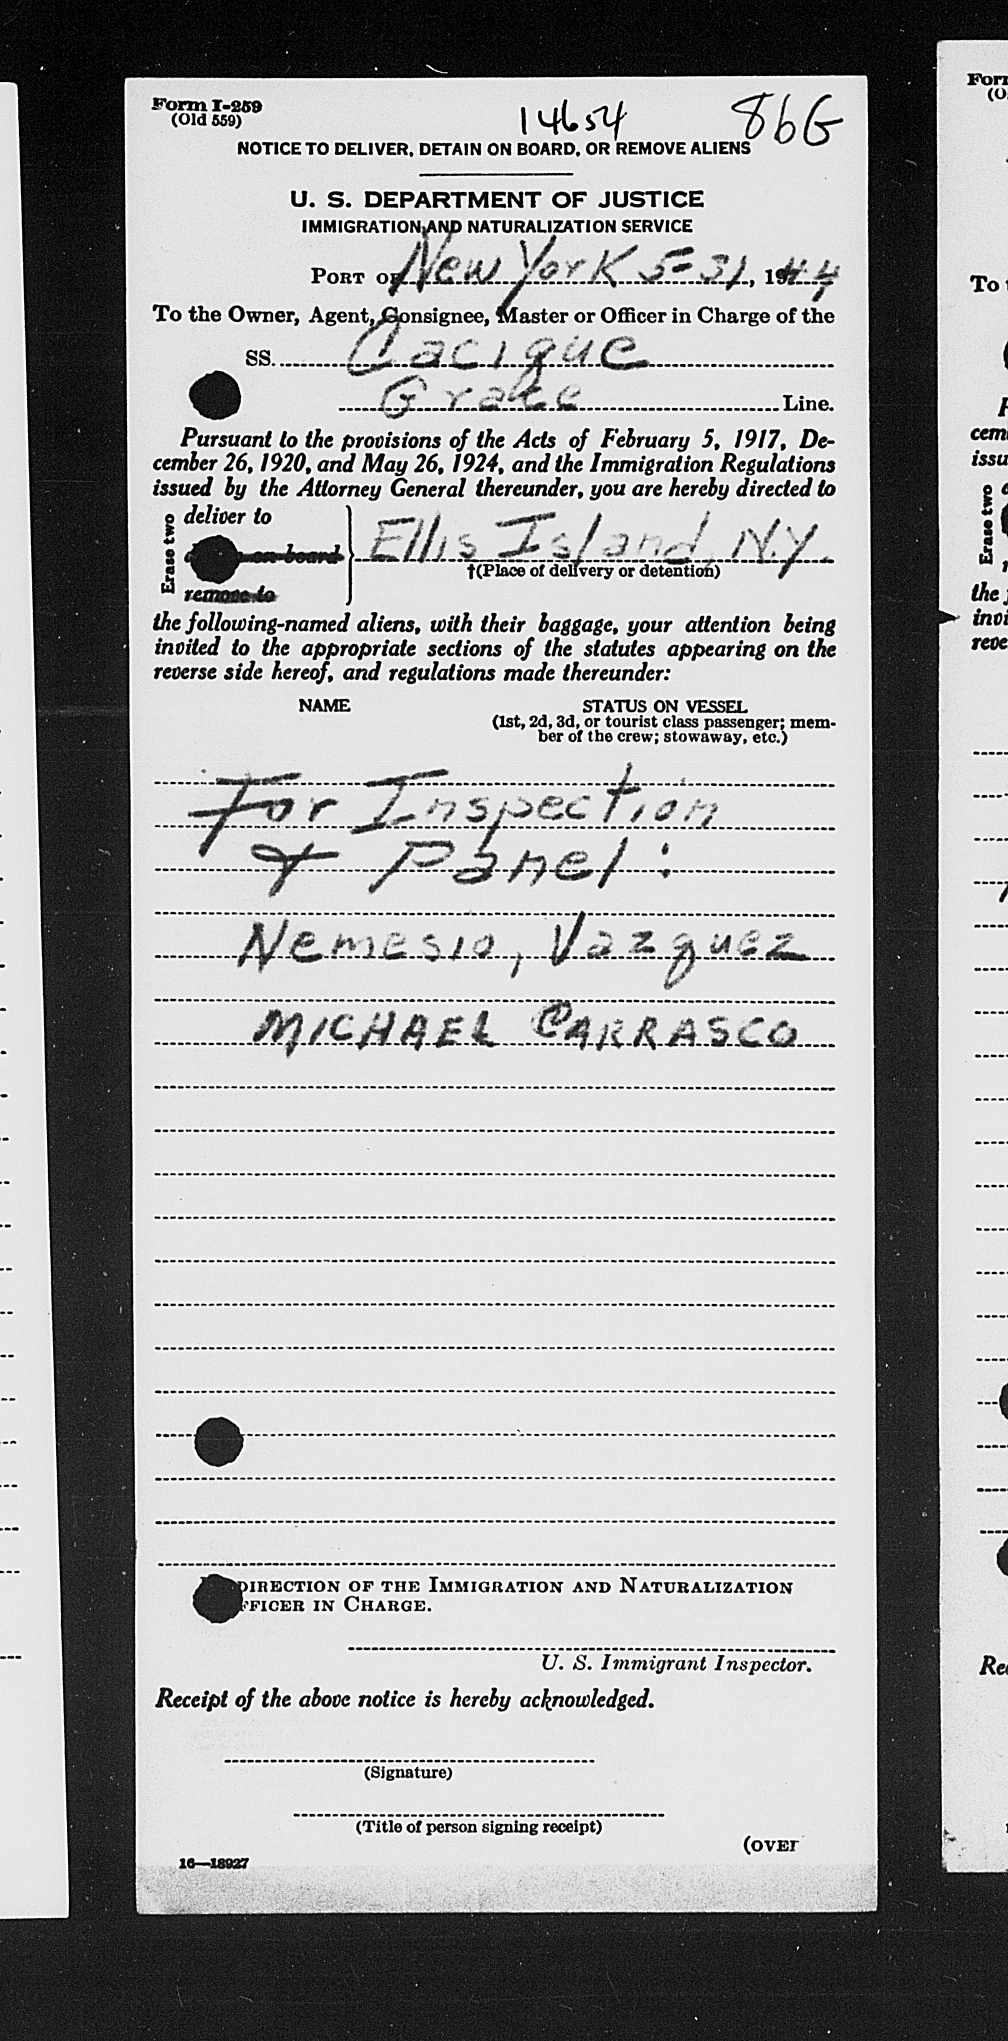 Form I-259
(Old 559)
14654 86G
NOTICE TO DELIVER, DETAIN ON BOARD, OR REMOVE ALIENS
U. S. DEPARTMENT OF JUSTICE
IMMIGRATION AND NATURALIZATION SERVICE
PORT OF New York 5-31, 1944
To the Owner, Agent, Consignee, Master or Officer in Charge of the
SS. Cacique
Grace Line.
Pursuant to the provisions of the Acts of February 5, 1917, De-
cember 26, 1920, and May 26, 1924, and the Immigration Regulations
issued by the Attorney General thereunder, you are hereby directed to
Erase two
deliver to
on board
remove to
Ellis Island, N.Y.
†(Place of delivery or detention)
the following-named aliens, with their baggage, your attention being
invited to the appropriate sections of the statutes appearing on the
reverse side hereof, and regulations made thereunder:
NAME STATUS ON VESSEL
(1st, 2d, 3d, or tourist class passenger; mem-
ber of the crew; stowaway, etc.)
For Inspection
& Panel:
Nemesio, Vazquez
MICHAEL CARRASCO
DIRECTION OF THE IMMIGRATION AND NATURALIZATION
FFICER IN CHARGE.
U. S. Immigrant Inspector.
Receipt of the above notice is hereby acknowledged.
(Signature)
(Title of person signing receipt)
(OVER
16—18927
Form
(O
To
cem
issu
Erase two
the
inv
reve
Re